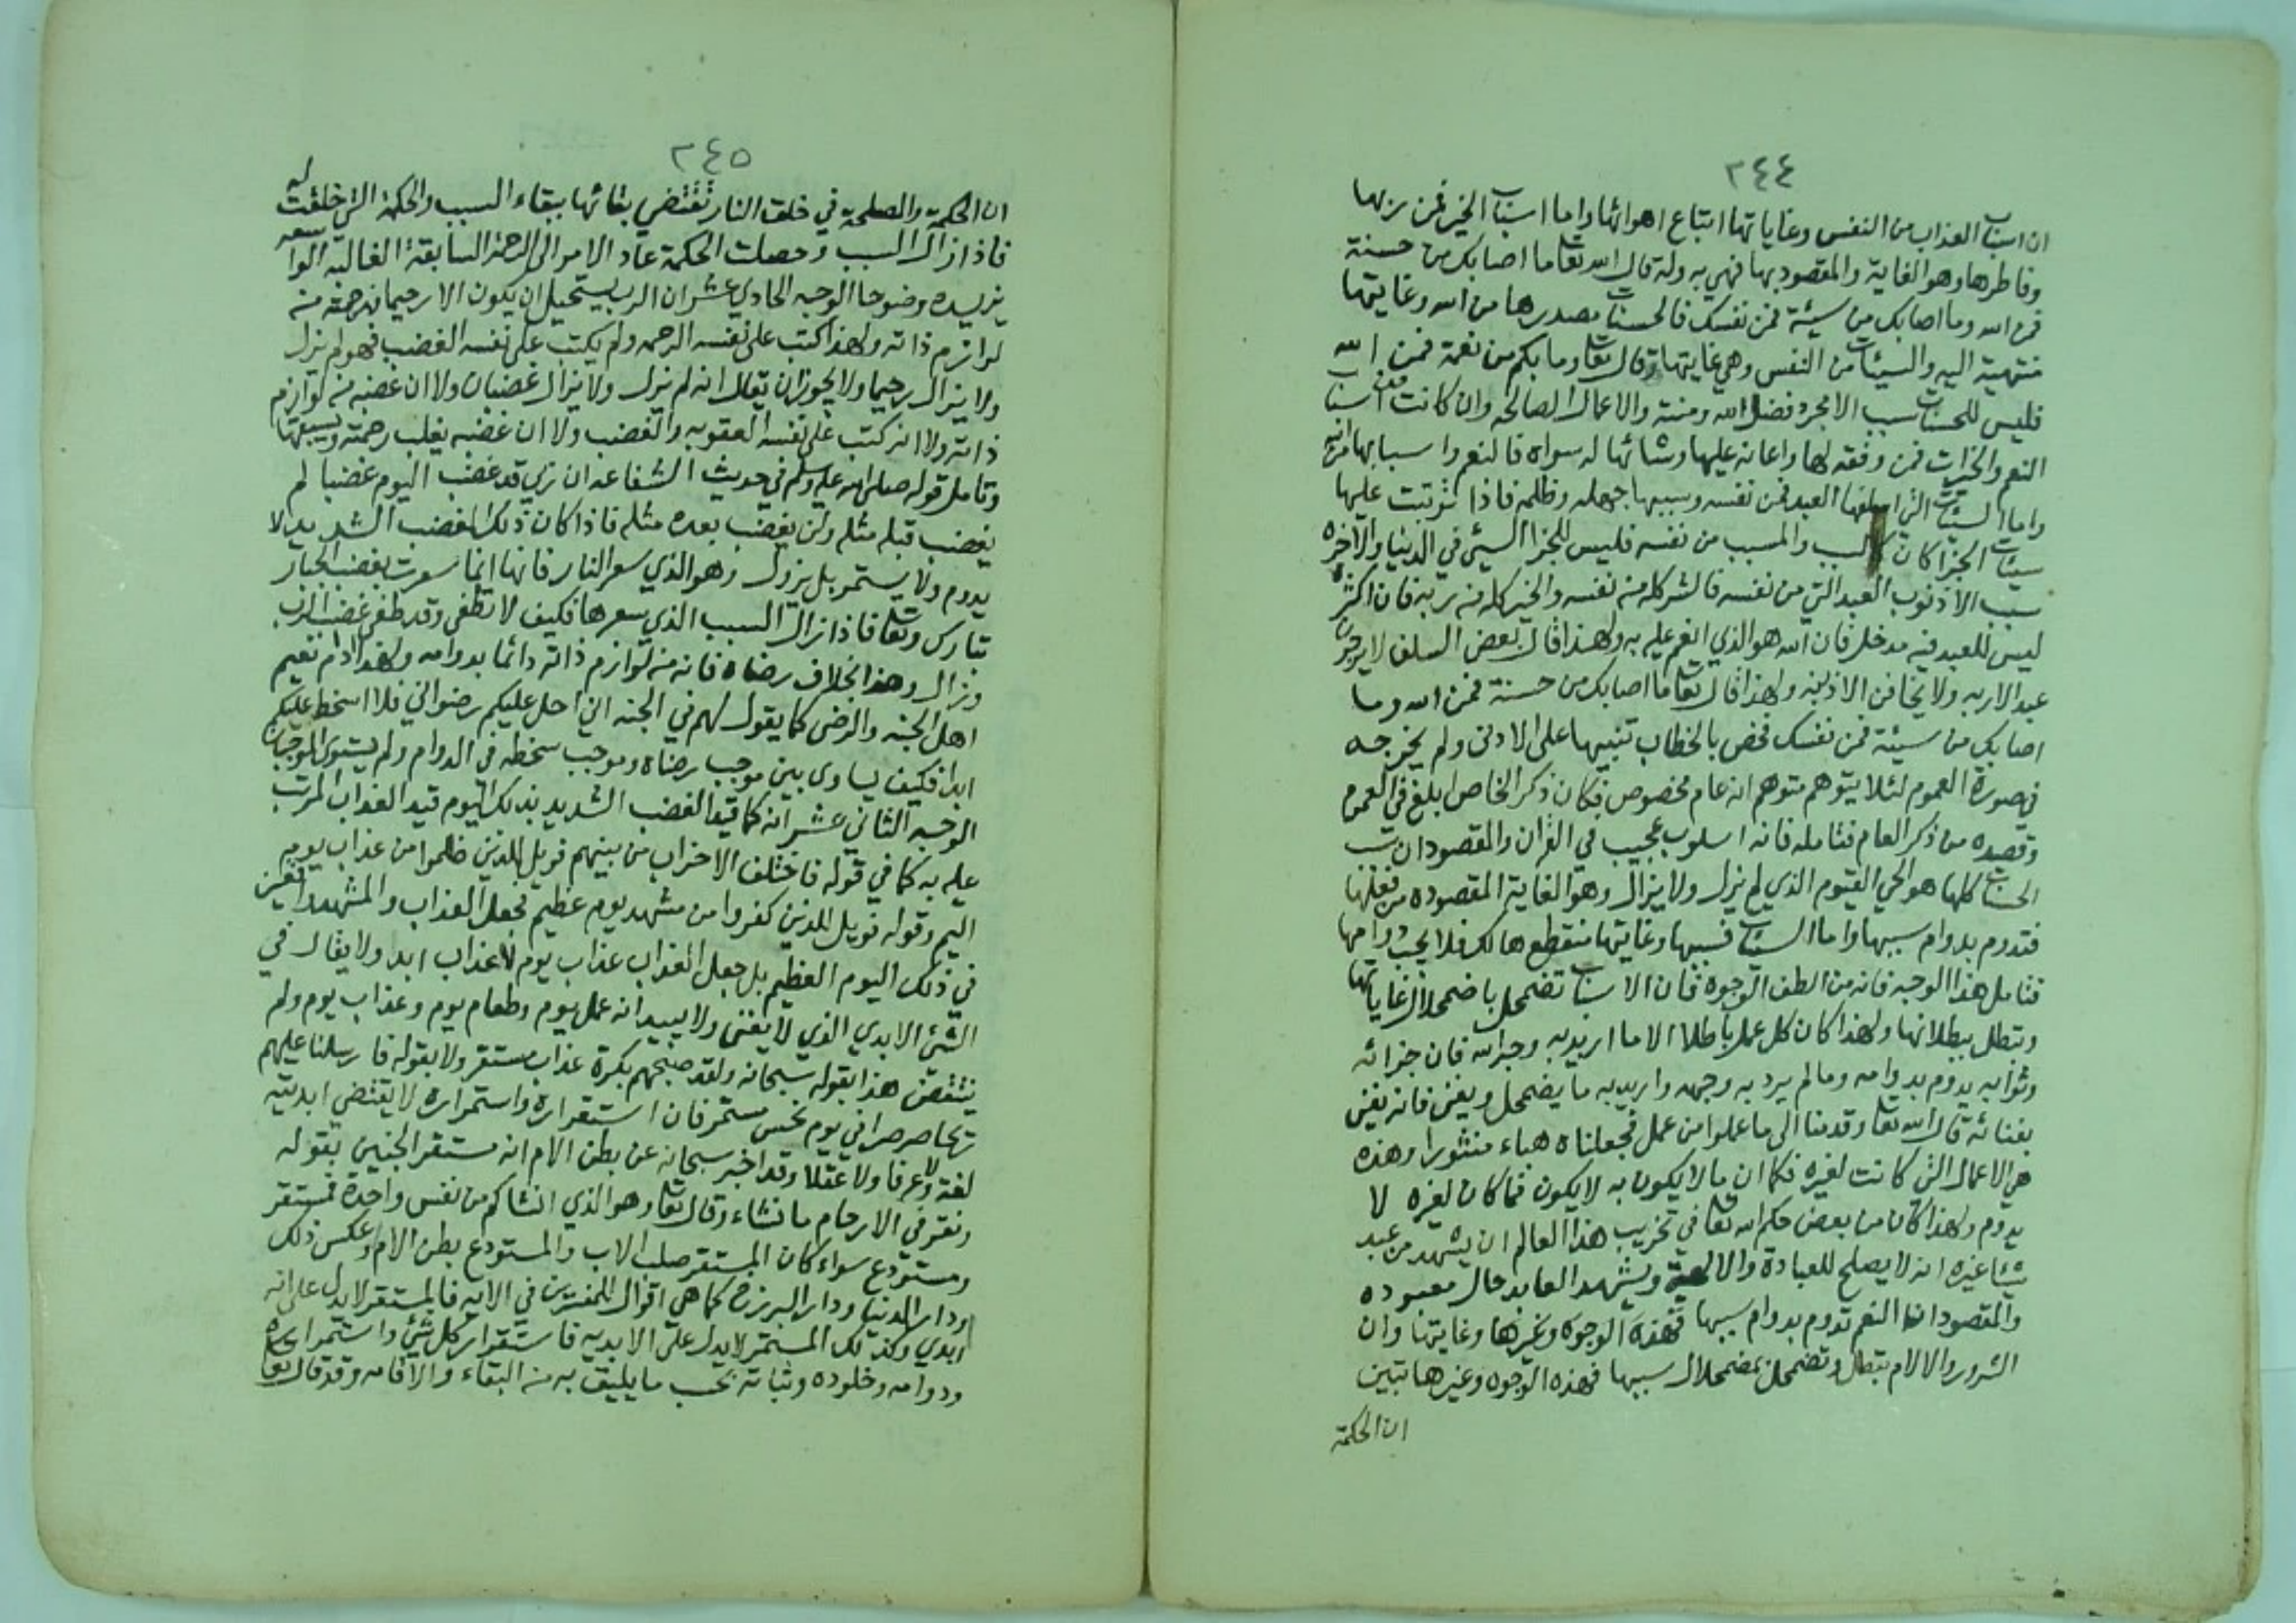 ٢٤٤
ان اسباب العذاب من النفس وغاياتها اتباع اهوائها واما اسباب الخير فمن ربها
وفاطرها وهو الغاية والمقصود بها فهي به وله قال الله تعا ما اصابك من حسنة
فمن الله وما اصابك من سيئة فمن نفسك فالحسنات مصدرها من الله وغايتها
منتهية اليه والسيئات من النفس وهي غايتها وقال تعا وما بكم من نعمة فمن الله
فليس للحسنات سبب الا مجرد فضل الله ومنته والاعمال الصالحه وان كانت اسباب
النعم والخيرات فمن وفقه لها واعانه عليها وشائها له سواه فالنعم واسبابها من الله
واما السيئات التي اسلفها العبد فمن نفسه وسببها جهله وظلمه فاذا ترتبت عليها
سيئات الجزا كان السبب والمسبب من نفسه فليس للجزا السيئ في الدنيا والاخره
سبب الا ذنوب العبد التي من نفسه فالشر كله من نفسه والخير كله من ربه فان اكثره
ليس للعبد فيه مدخل فان الله هو الذي انعم عليه به ولهذا قال بعض السلف لا يرجون
عبد الا ربه ولا يخافن الا ذنبه ولهذا قال تعا ما اصابك من حسنة فمن الله وما
اصابك من سيئة فمن نفسك فخص بالخطاب تنبيها على الادنى ولم يخرجه
في صورة العموم لئلا يتوهم متوهم انه عام مخصوص فكان ذكر الخاص ابلغ في العموم
وقصده من ذكر العام فتامله فانه اسلوب عجيب في القران والمقصود ان سبب
الحسنات كلها هو الحي القيوم الذي لم يزل ولا يزال وهو الغاية المقصوده من فعلها
فتدوم بدوام سببها واما السيئات فسببها وغايتها منقطع هالك فلا يجب دوامها
فتامل هذا الوجه فانه من الطف الوجوه فان الاسباب تضمحل باضمحلال غاياتها
وتبطل ببطلانها ولهذا كان كل عمل باطلا الا ما اريد به وجه الله فان جزائه
وثوابه يدوم بدوامه وما لم يرد به وجهه واريد به ما يضمحل ويفنى فانه يفنى
بفنائه قال الله تعا وقدمنا الى ما عملوا من عمل فجعلناه هباء منثورا وهذه
هي الاعمال التي كانت لغيره فكما ان ما لا يكون به لا يكون فما كان لغيره لا
يدوم ولهذا كان من بعض حكم الله تعا في تخريب هذا العالم ان يشهد من عبد
شيئا غيره انه لا يصلح للعبادة والالهية ويشهد العابد حال معبوده
والمقصود ان النعم تدوم بدوام سببها فهذه الوجوه وغيرها وغايتها وان
الشرور والالام تبطل وتضمحل بمضمحلال سببها فهذه الوجوه وغيرها تبين
ان الحكمة
٢٤٥
ان الحكمة والمصلحة في خلق النار تقتضي بقائها ببقاء السبب والحكمة التي خلقت له
فاذا زال السبب وحصلت الحكمة عاد الامر الى الرحمة السابقة الغالبة الواسعه
يزيده وضوحا الوجه الحادي عشر ان الرب يستحيل ان يكون الا رحيما فرحمته من
لوازم ذاته ولهذا كتب على نفسه الرحمه ولم يكتب على نفسه الغضب فهو لم يزل
ولا يزال رحيما ولا يجوز ان يقال انه لم يزل ولا يزال غضبان ولا ان غضبه من لوازم
ذاته ولا انه كتب على نفسه العقوبه والغضب ولا ان غضبه يغلب رحمته ويسبقها
وتامل قوله صلى الله عليه وسلم في حديث الشفاعه ان ربي قد غضب اليوم غضبا لم
يغضب قبله مثله ولن يغضب بعده مثله فاذا كان ذلك الغضب الشديد لا
يدوم ولا يستمر بل يزول وهو الذي سعر النار فانها انما سعرت بغضب الجبار
تبارك وتعا فاذا زال السبب الذي سعرها فكيف لا تطفى وقد طفى غضب الرب
وزال وهذا بخلاف رضاه فانه من لوازم ذاته دائما بدوامه ولهذا دام نعيم
اهل الجنه والرضى كما يقول لهم في الجنه اني احل عليكم رضواني فلا اسخط عليكم
ابدا فكيف يساوى بين موجب رضاه وموجب سخطه في الدوام ولم يستو الموجبان
الوجه الثاني عشر انه كما قيد الغضب الشديد بذلك اليوم قيد العذاب المرتب
عليه به كما في قوله فاختلف الاحزاب من بينهم فويل للذين ظلموا من عذاب يوم
اليم وقوله فويل للذين كفروا من مشهد يوم عظيم فجعل العذاب والمشهد واقعين
في ذلك اليوم العظيم بل جعل العذاب عذاب يوم لا عذاب ابد ولا يقال في
الشيئ الابدي الذي لا يفنى ولا يبيد انه عمل يوم وطعام يوم وعذاب يوم ولم
ينتقض هذا بقوله سبحانه ولقد صبحهم بكرة عذاب مستقر ولا بقوله فارسلنا عليهم
ريحا صرصرا في يوم نحس مستمر فان استقراره واستمراره لا يقتضي ابديته
لغة ولا عرفا ولا عقلا وقد اخبر سبحانه عن بطن الام انه مستقر الجنين بقوله
ونقر في الارحام ما نشاء وقال تعا وهو الذي انشاكم من نفس واحدة فمستقر
ومستودع سواء كان المستقر صلب الاب والمستودع بطن الام او عكس ذلك
او دار الدنيا ودار البرزخ كما هي اقوال المفسرين في الايه فالمستقر لا يدل على انه
ابدي وكذلك المستمر لا يدل على الابديه فاستقرار كل شيئ واستمراره
ودوامه وخلوده وثباته بحسب ما يليق به من البقاء والاقامه وقد قال تعا